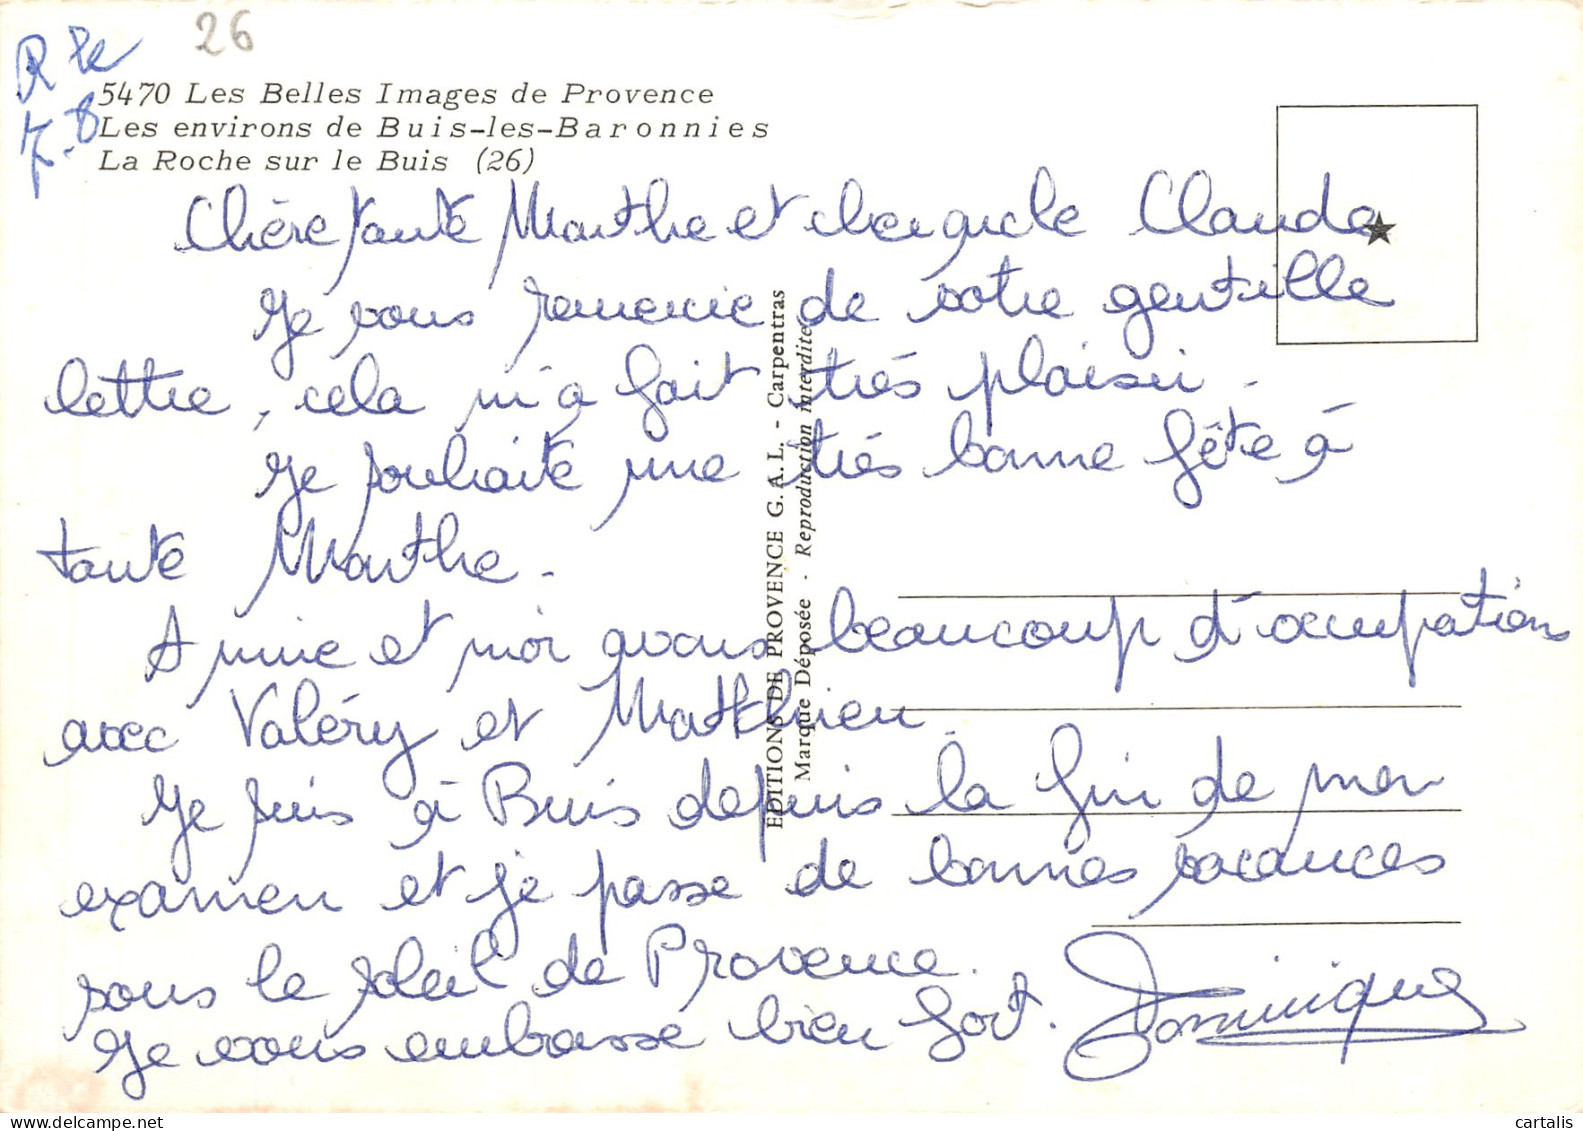 26
R le
7-8
5470 Les Belles Images de Provence
Les environs de Buis-les-Baronnies
La Roche sur le Buis (26)
Chère tante Marthe et cher oncle Claude
Je vous remercie de votre gentille
lettre, cela m'a fait très plaisir.
Je souhaite une très bonne fête à
tante Marthe.
Annie et moi avons beaucoup d'occupations
avec Valéry et Matthieu.
Je suis à Buis depuis la fin de mon
examen et je passe de bonnes vacances
sous le soleil de Provence.
Je vous embrasse bien fort. Dominique
EDITIONS DE PROVENCE G.A.L. - Carpentras
Marque Déposée - Reproduction interdite
www.delcampe.net
cartalis